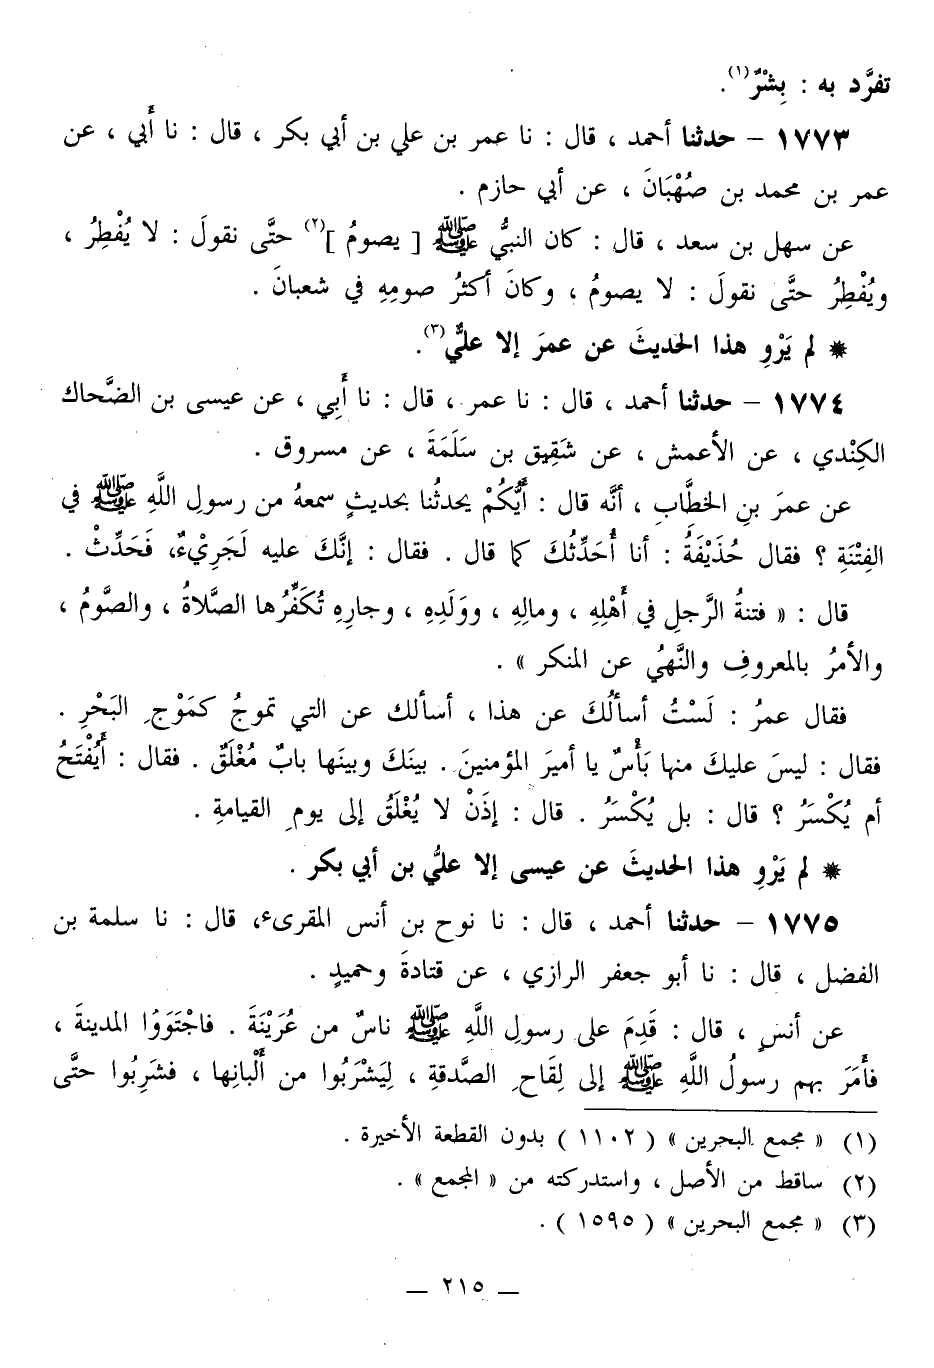 تفرَّد به : بِشْرٌ(١).
١٧٧٣ – حدثنا أحمد ، قال : نا عمر بن علي بن أبي بكر ، قال : نا أَبي ، عن
عمر بن محمد بن صُهْبَانَ ، عن أبي حازم .
عن سهل بن سعد ، قال : كان النبيُّ ﷺ [ يصومُ ](٢) حتَّى نقولَ : لا يُفْطِرُ ،
ويُفْطِرُ حتَّى نقولَ : لا يصومُ ، وكانَ أكثرُ صومِهِ في شعبانَ .
* لم يَرْوِ هذا الحديثَ عن عمرَ إلا عليٌّ(٣).
١٧٧٤ – حدثنا أحمد ، قال : نا عمر ، قال : نا أَبِي ، عن عيسى بن الضَّحاك
الكِنْدي ، عن الأعمش ، عن شَقِيق بن سَلَمَةَ ، عن مسروق .
عن عمرَ بنِ الخطَّابِ ، أنَّه قال : أَيُّكُمْ يحدثُنا بحديثٍ سمعهُ من رسولِ اللَّهِ ﷺ في
الفِتْنَةِ ؟ فقال حُذَيْفَةُ : أنا أُحَدِّثُكَ كما قال . فقال : إنَّكَ عليه لَجَرِيْءٌ، فَحَدِّثْ .
قال : « فتنةُ الرَّجلِ في أَهْلِهِ ، ومالِهِ ، ووَلَدِهِ ، وجارِهِ تُكَفِّرُها الصَّلاةُ ، والصَّومُ ،
والأمرُ بالمعروفِ والنَّهيُ عن المنكر » .
فقال عمرُ : لَسْتُ أسألُكَ عن هذا ، أسألك عن التي تموجُ كمَوْجِ البَحْرِ .
فقال : ليسَ عليكَ منها بَأْسٌ يا أميرَ المؤمنينَ . بينَكَ وبينَها بابٌ مُغْلَقٌ . فقال : أَيُفْتَحُ
أم يُكْسَرُ ؟ قال : بل يُكْسَرُ . قال : إذَنْ لا يُغْلَقُ إلى يومِ القيامةِ .
* لم يَرْوِ هذا الحديثَ عن عيسى إلا عليُّ بن أبي بكر .
١٧٧٥ – حدثنا أحمد ، قال : نا نوح بن أنس المقرىء، قال : نا سلمة بن
الفضل ، قال : نا أبو جعفر الرازي ، عن قتادةَ وحميدٍ .
عن أنسٍ ، قال : قَدِمَ على رسولِ اللَّهِ ﷺ ناسٌ من عُرَيْنَةَ . فاجْتَوَوُا المدينةَ ،
فأَمَرَ بهم رسولُ اللَّهِ ﷺ إلى لِقَاحِ الصَّدقةِ ، لِيَشْرَبُوا من أَلْبانِها ، فشَرِبُوا حتَّى
(١) « مجمع البحرين » ( ١١٠٢ ) بدون القطعة الأخيرة .
(٢) ساقط من الأصل ، واستدركته من « المجمع » .
(٣) « مجمع البحرين » ( ١٥٩٥ ) .
— ٢١٥ —